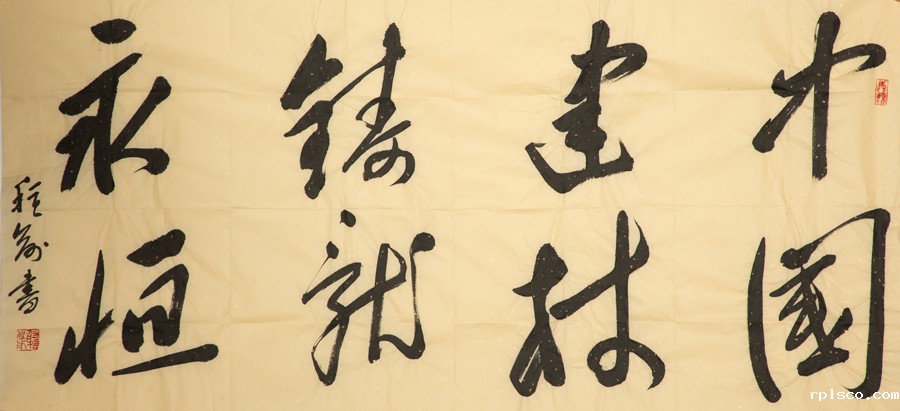 中國
建材
鑄就
永恒
程 書
rplsco.com